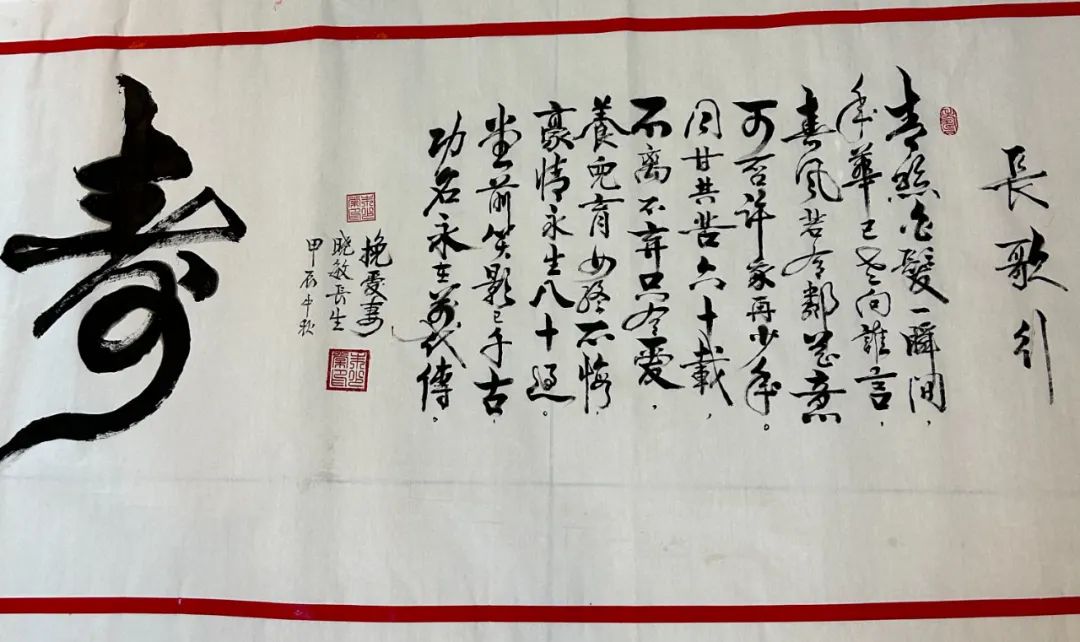 長歌引
青絲白髮一瞬间，
年華已老向誰言，
春風若有憐花意
可否许家再少年。
同甘共苦六十載，
不离不弃只为爱，
養兒育女终不悔，
豪情永生八十過。
堂前笑影已千古，
功名永在萬代傳。
挽爱妻
晓敏長生
甲辰中秋
壽